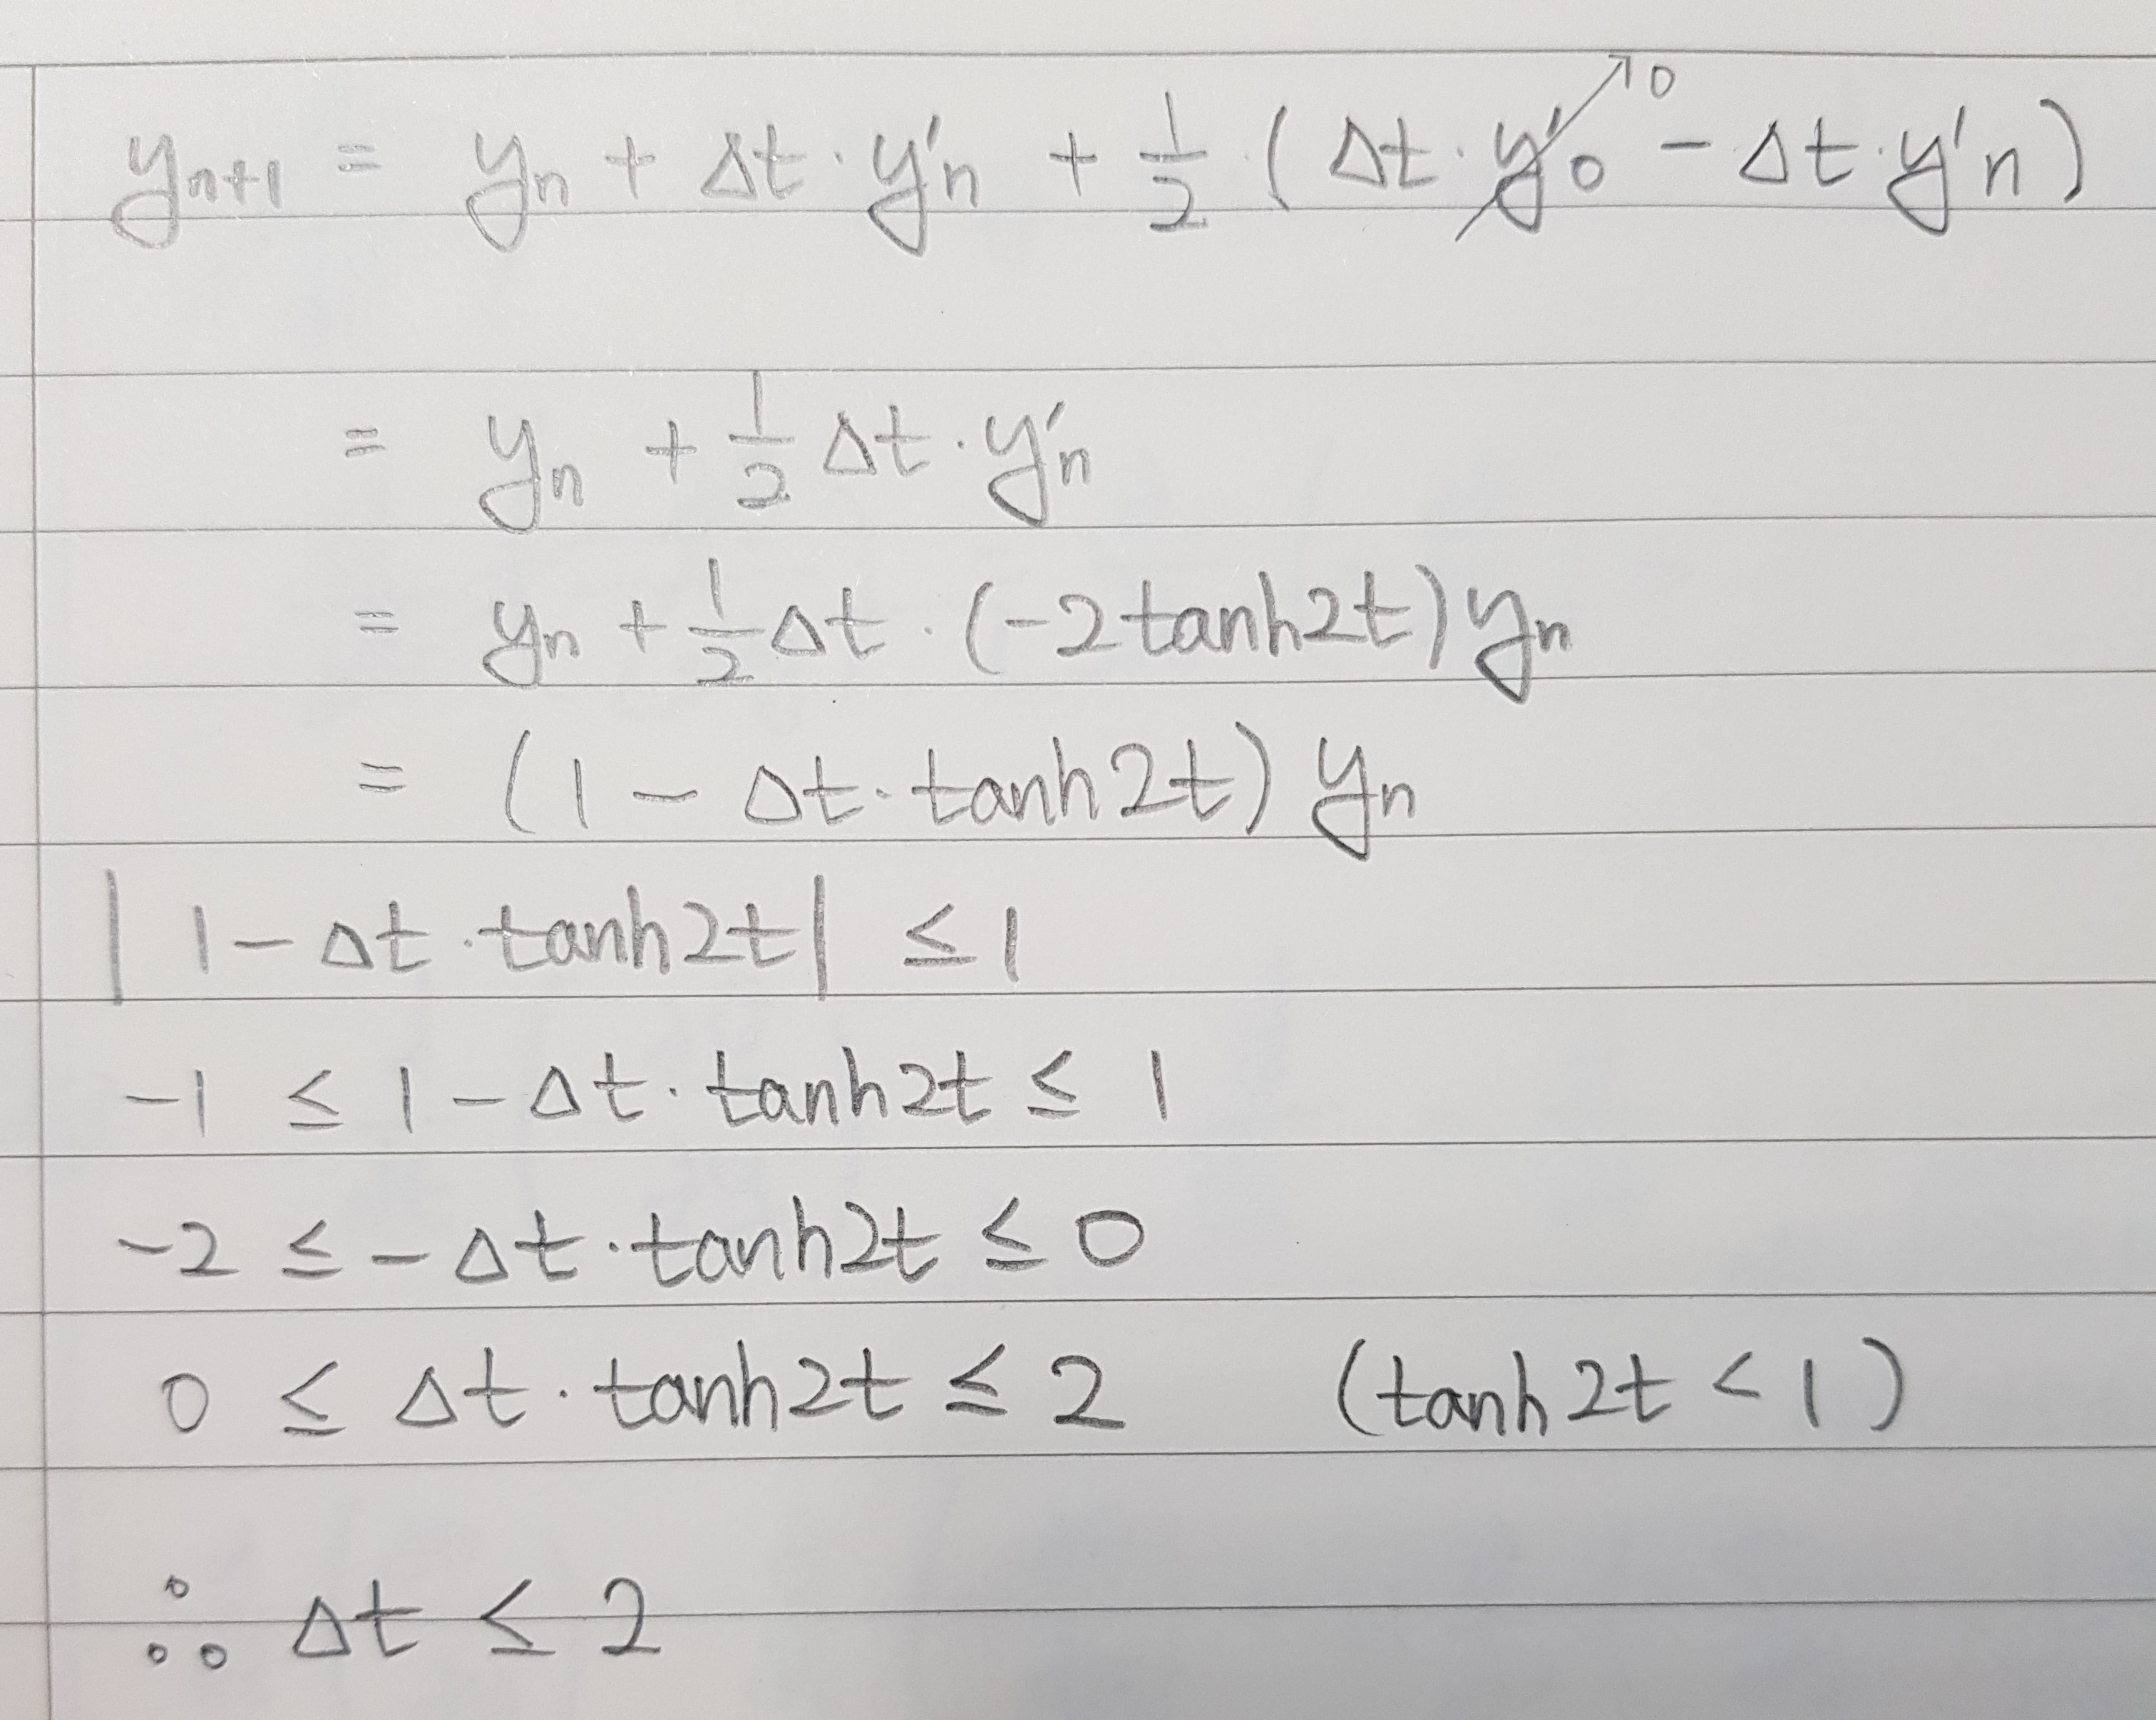 yₙ₊₁ = yₙ + Δt · y'ₙ + 1/2 · (Δt · y'₀ → 0 - Δt · y'n)
= yₙ + 1/2 Δt · y'ₙ
= yₙ + 1/2 Δt · (-2 tanh2t) yₙ
= (1 - Δt · tanh2t) yₙ
|1 - Δt · tanh2t| ≤ 1
-1 ≤ 1 - Δt · tanh2t ≤ 1
-2 ≤ - Δt · tanh2t ≤ 0
0 ≤ Δt · tanh2t ≤ 2 (tanh2t < 1)
∴ Δt ≤ 2